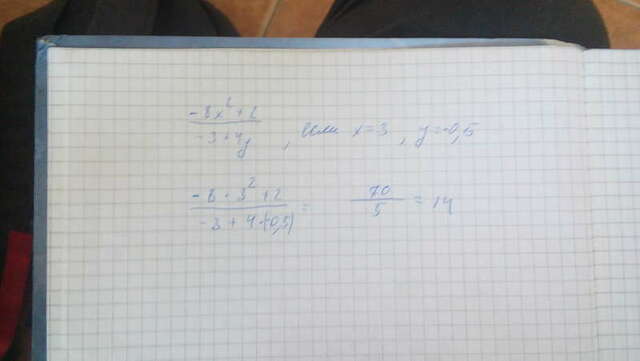 -8x²+2
-3+4y , если x=3 , y=-0,5
-8·3²+2
-3+4·(-0,5) = 70/5 = 14